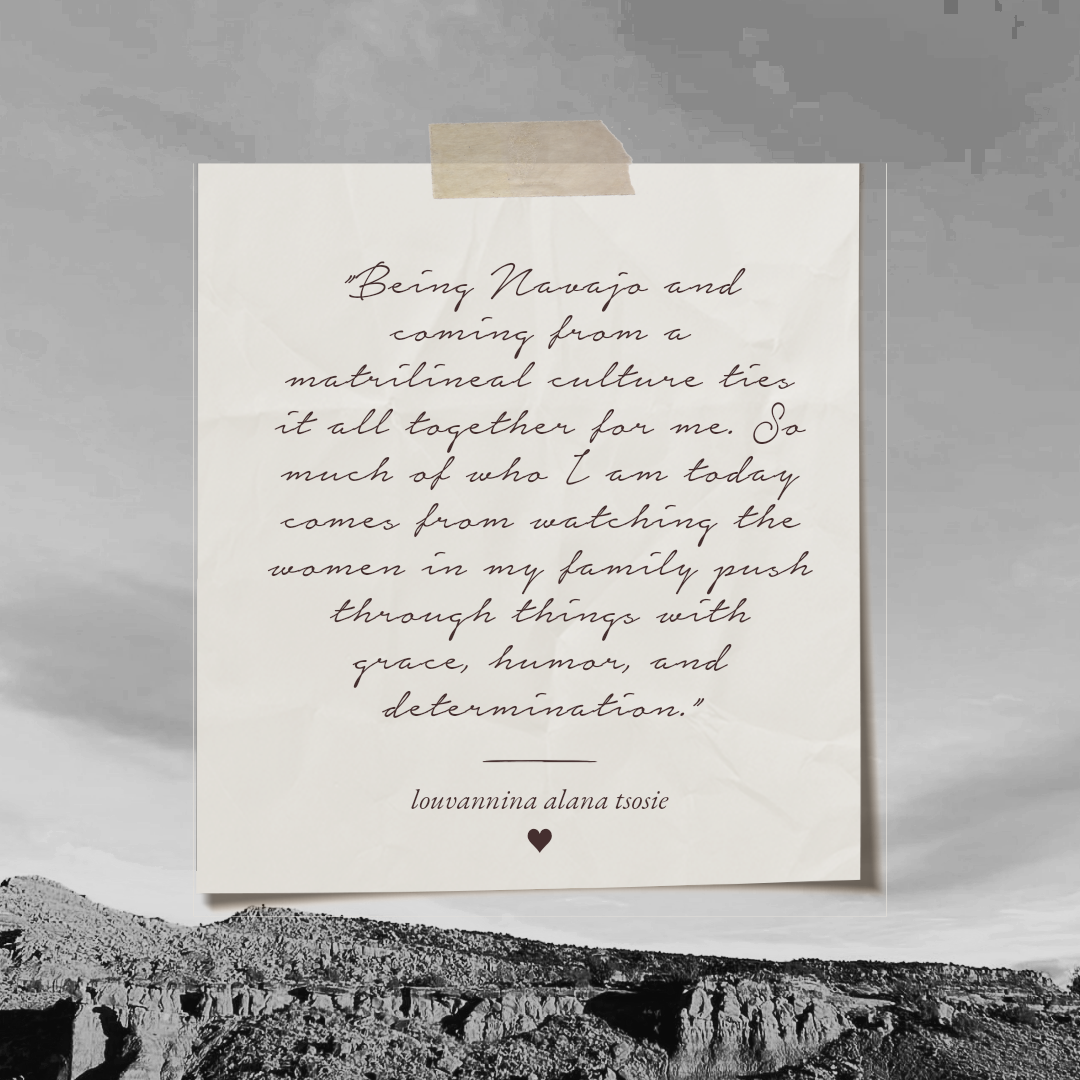 "Being Navajo and
coming from a
matrilineal culture ties
it all together for me. So
much of who I am today
comes from watching the
women in my family push
through things with
grace, humor, and
determination."
louvannina alana tsosie